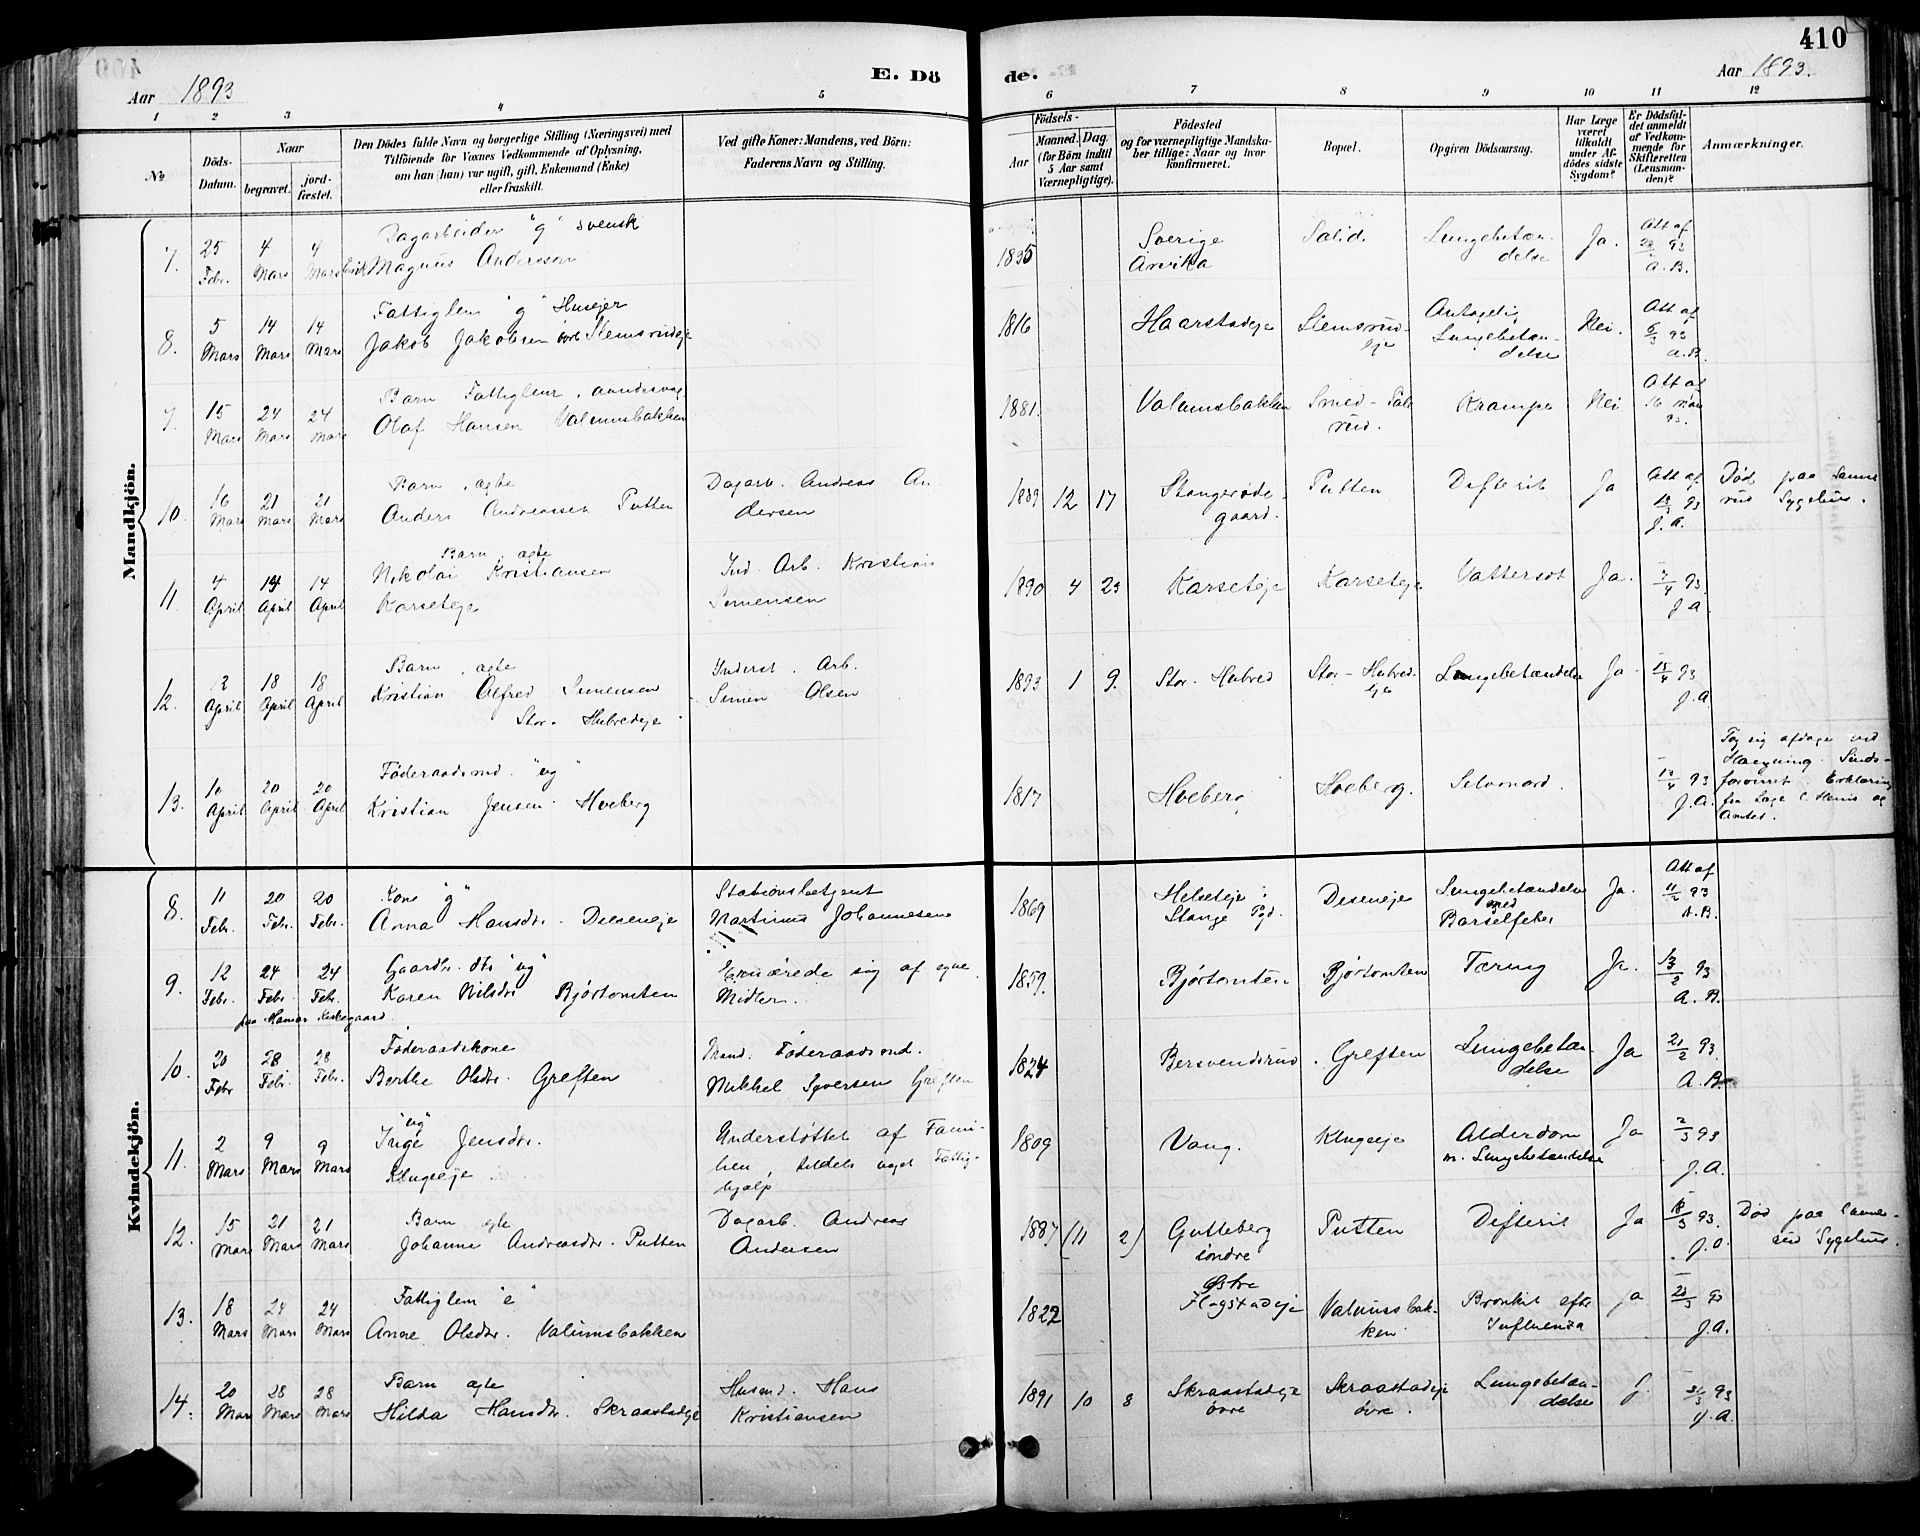 410
E. Dö
de.
Aar 1893
Aar 1893.
1 2 3 4 5 6 7 8 9 10 11 12
No
Döds-Datum.
Naar
begravet.
jord-fæstet.
Den Dödes fulde Navn og borgerlige Stilling (Næringsvei) med
Tilföiende for Voxnes Vedkommende af Oplysning,
om han (hun) var ugift, gift, Enkemand (Enke)
eller fraskilt.
Ved gifte Koner: Mandens, ved Börn:
Faderens Navn og Stilling.
Födsels-
Aar
Maaned. Dag.
(for Börn indtil
5 Aar samt
Værnepligtige).
Födested
og for værnepligtige Mandska-
ber tillige: Naar og hvor
konfirmeret.
Bopæl.
Opgiven Dödsaarsag.
Har Læge
været
tilkaldt
under Af-
dödes sidste
Sygdom?
Er Dödsfal-
det anmeldt
af Vedkom-
mende for
Skifteretten
(Lensman-
den)?
Anmærkninger.
Mandkjön.
7. 25 Febr. 4 Mars 4 Mars
Dagarbeider "g" svensk
Magnus Anderson
1835 Sverige Arvika Lungebetæn-delse Ja. Att af 93 A.B.
8. 5 Mars 14 Mars 14 Mars
Fattiglem "g" Husejer
Jakob Jakobsen Stemsrudeje
1816 Haarstadeje Stemsrud-eje Antagelig Lungebetæn-delse Nei. Att af 6/3 93 A.B.
15 Mars 24 Mars 24 Mars
Barn Fattiglem,
Olaf Hansen Valumsbakken
1881. Valumsbakken Krampe Nei Att af 16 Mars 93.
10. 16 Mars 21 Mars 21 Mars
Barn, ægte
Anders Andreassen Putten
Dagarb. Andreas An-
dersen
1889 12 17 Stangerøde-gaard. Putten Difterit Ja Att af 18/3 93 J.A.
Død paa Sanne-
rud Sygehus.
11. 4 April 14 April 14 April
Barn, ægte
Nikolai Kristiansen
Karseteje
Ind. Arb. Kristian
Simensen
1890 4 23 Karseteje Karseteje Vattersot Ja. 7/4 93 J.A.
12. 2 April 18 April 18 April
Barn, ægte
Kristian Alfred Simensen
Stor-Hubredeje
Inderst. Arb.
Simen Olsen
1893 1 9. Stor-Hubred Stor-Hubred-eje Lungebetændelse Ja 15/4 93 J.A.
13. 10 April 20 April 20 April
Føderaadsmd. "ug"
Kristian Jensen Hveberg
1817 Hveberg Hveberg. Selvmord. 12/4 93 J.A.
Tog sig afdage ved
Hængning. Sinds-
forvirret. Erklæring
fra Læge og
Amtet.
Kvindekjön.
8. 11 Febr. 20 Febr. 20 Febr.
Kone "g"
Anna Hansdr. Deseneje
Stationsbetjent
Martinus Johannesen
1869 Helseteje Stange Pgd. Deseneje Lungebetændelse med Barselfeber Ja. Att af 11/2 93 A.B.
9. 12 Febr. 24 Febr. 24 Febr.
paa Hamar Kirkegaard.
Gaardbr. dtr "ug"
Karen Nilsdr Bjørtomten
Ernærede sig af egne
Midler.
1859. Bjørtomten Bjørtomten Tæring Ja. 13/2 93 A.B.
10. 20 Febr 28 Febr. 28 Febr.
Føderaadskone
Berthe Olsdr. Greften
Mand. Føderaadsmd.
Mikkel Syversen Greften
1824 Bersvendsrud Greften Lungebetæn-delse Ja 21/2 93 A.B.
11. 2 Mars 9 Mars 9 Mars
"ug"
Inge Jensdr.
Klugeeje
Understøttet af Fami-
lien, tildels noget Fattig-
hjælp
1809 Vang. Klugeeje Alderdom m. Lungebetændelse Ja 2/3 93 J.A.
12. 15 Mars 21 Mars 21 Mars
Barn ægte
Johanne Andreasdr. Putten
Dagarb. Andreas
Andersen
1887 (11 2) Gutteberg søndre Putten Difterit Ja 18/3 93. J.A.
Død paa Sanne-
rud Sygehus.
13. 18 Mars 24 Mars 24 Mars
Fattiglem "e"
Anne Olsdr. Valumsbakken
1822 Østre Flagstadeje Valumsbak-ken Bronkit efter Influenza Ja 20/3 93 J.A.
14. 20 Mars 28 Mars 28 Mars
Barn ægte
Hilda Hansdr. Skraastadeje
Husmd. Hans
Kristiansen
1891 10 8 Skraastadeje øvre Skraastadeje øvre. Lungebetæn-delse J. 21/3 93 J.A.